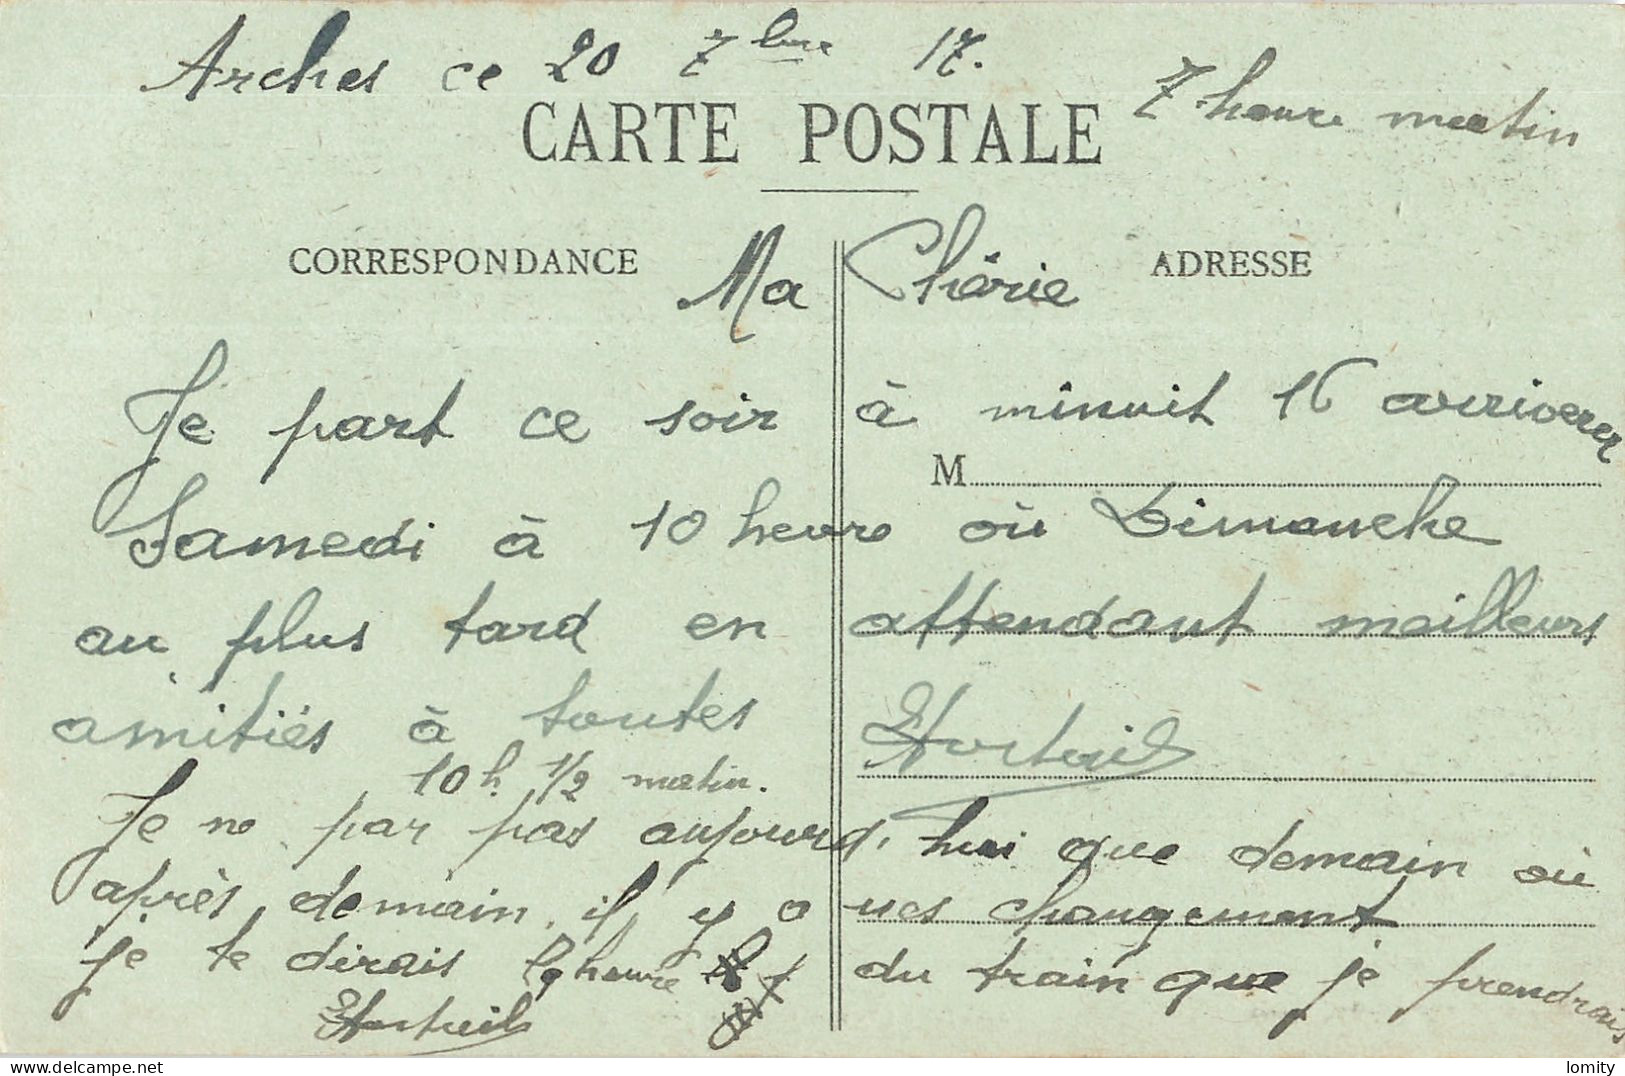 Arches ce 20 7bre 17.
7 heure matin
CARTE POSTALE
CORRESPONDANCE
ADRESSE
Ma Chérie
Je part ce soir à minuit 16 arriverer
M
Samedi à 10 heure où Dimanche
au plus tard en attendant meilleurs
amitiés à toutes
10 h. 1/2 matin.
Je ne par pas aujourd'hui que demain où
après demain il y a ues changement
je te dirais l'heure du train que je prendrais
www.delcampe.net
lomity